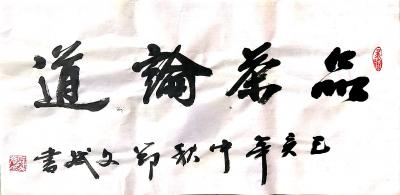 品茶論道
己亥年中秋節文斌書